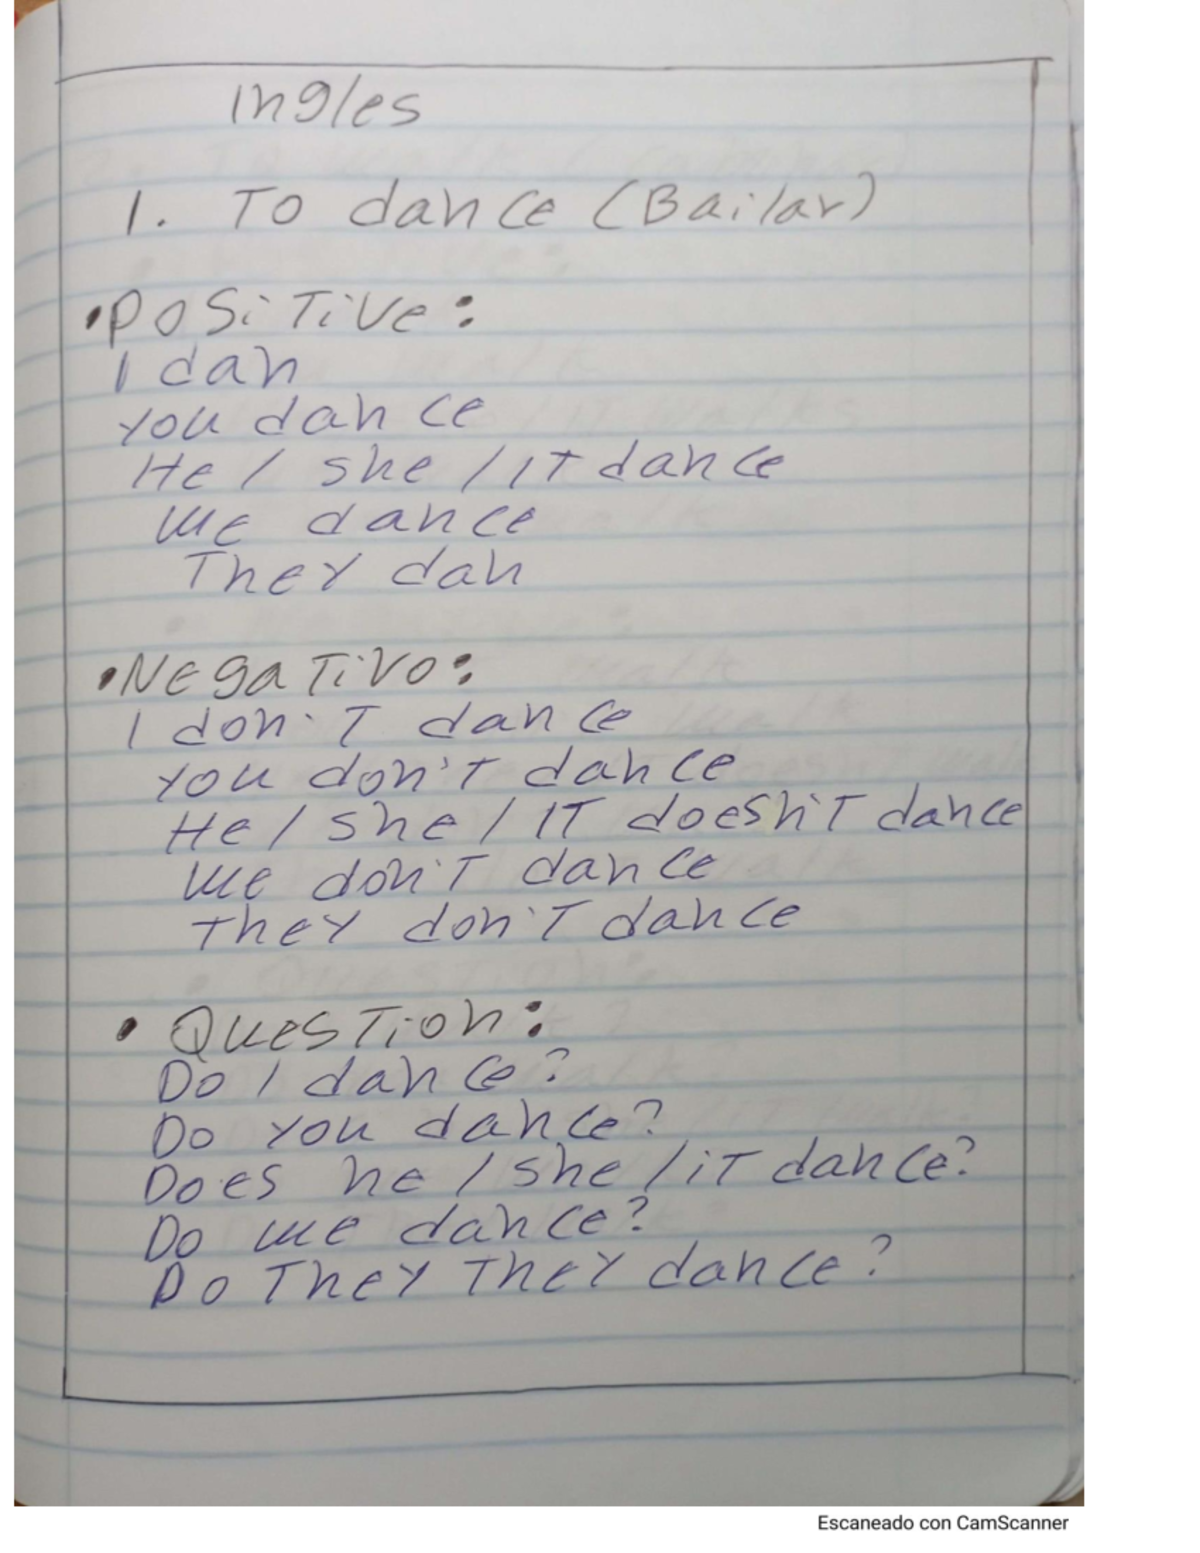 Ingles
1. To dance (Bailar)
•Positive:
I dan
You dance
He / she / IT dance
We dance
They dan
•Negativo:
I don't dance
You don't dance
He / She / IT doesn't dance
We don't dance
They don't dance
• Question:
Do I dance?
Do you dance?
Does he / she / it dance?
Do we dance?
Do They They dance?
Escaneado con CamScanner